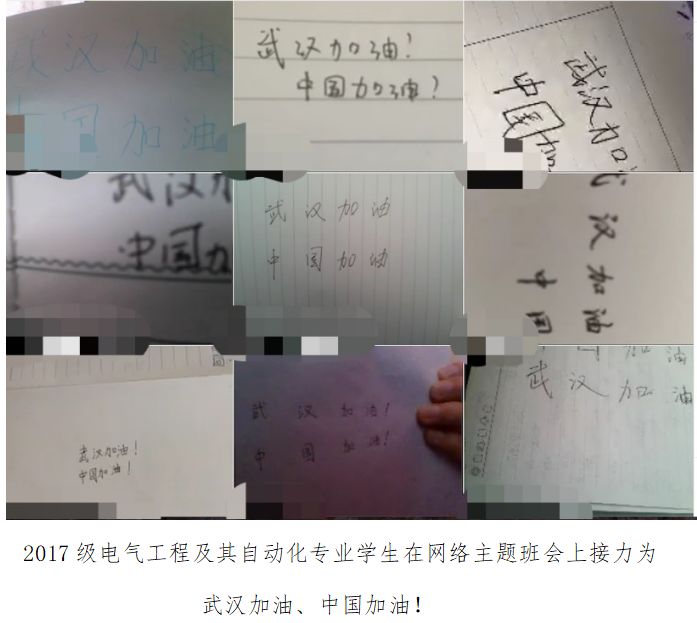 武汉加油
中国加油
武汉加油！
中国加油！
武汉加
中国加
武汉加
中国加
武汉加油
中国加油
汉加油
中国
武汉加油！
中国加油！
武汉加油！
中国加油！
加油
武汉加油
2017级电气工程及其自动化专业学生在网络主题班会上接力为
武汉加油、中国加油！